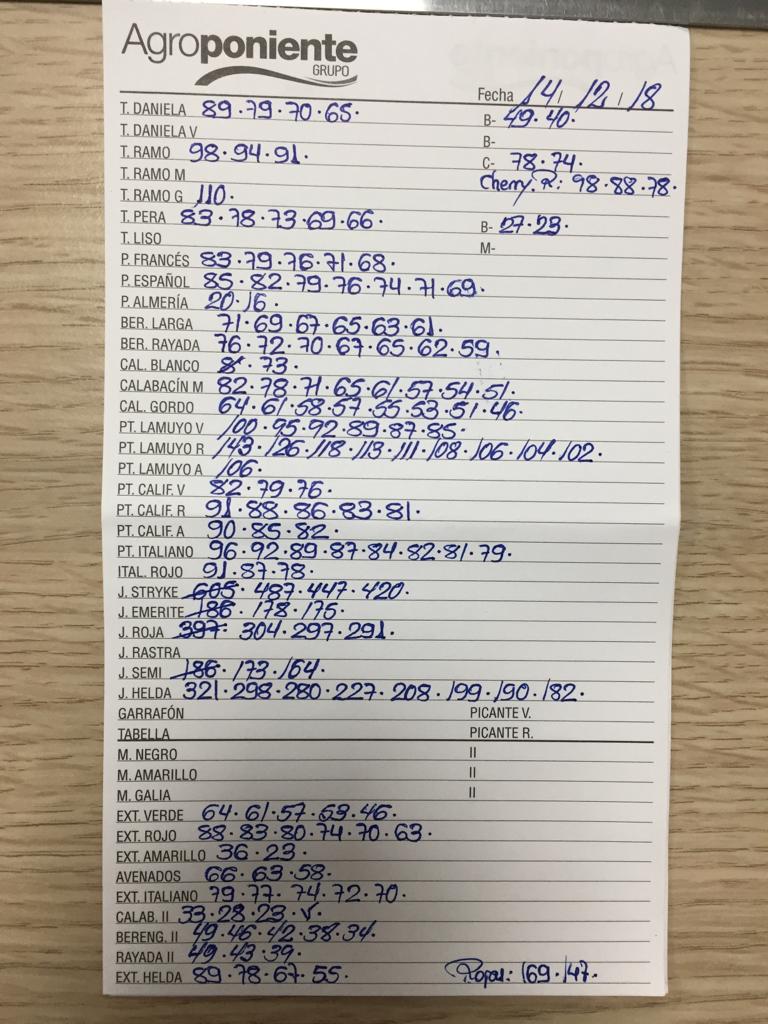 Agroponiente
GRUPO
Fecha 14, 12, 18
T. DANIELA 89.79.70.65. B- 49.40.
T. DANIELA V B-
T. RAMO 98.94.91. C- 78.74.
T. RAMO M Cherry.R: 98.88.78.
T. RAMO G 110.
T. PERA 83.78.73.69.66. B- 27.23.
T. LISO M-
P. FRANCÉS 83.79.76.71.68.
P. ESPAÑOL 85.82.79.76.74.71.69.
P. ALMERÍA 20.16.
BER. LARGA 71.69.67.65.63.61.
BER. RAYADA 76.72.70.67.65.62.59.
CAL. BLANCO 73.
CALABACÍN M 82.78.71.65.61.57.54.51.
CAL. GORDO 64.61.58.57.55.53.51.46.
PT. LAMUYO V 100.95.92.89.87.85.
PT. LAMUYO R 143.126.118.113.111.108.106.104.102.
PT. LAMUYO A 106.
PT. CALIF. V 82.79.76.
PT. CALIF. R 91.88.86.83.81.
PT. CALIF. A 90.85.82.
PT. ITALIANO 96.92.89.87.84.82.81.79.
ITAL. ROJO 91.87.78.
J. STRYKE 605.487.447.420.
J. EMERITE 186.178.175.
J. ROJA 397.304.297.291.
J. RASTRA
J. SEMI 186.173.164.
J. HELDA 321.298.280.227.208.199.190.182.
GARRAFÓN PICANTE V.
TABELLA PICANTE R.
M. NEGRO II
M. AMARILLO II
M. GALIA II
EXT. VERDE 64.61.57.53.46.
EXT. ROJO 88.83.80.74.70.63.
EXT. AMARILLO 36.23.
AVENADOS 66.63.58.
EXT. ITALIANO 79.77.74.72.70.
CALAB. II 33.28.23.
BERENG. II 49.46.42.38.34.
RAYADA II 49.43.39.
EXT. HELDA 89.78.67.55. Rojas: 169.147.